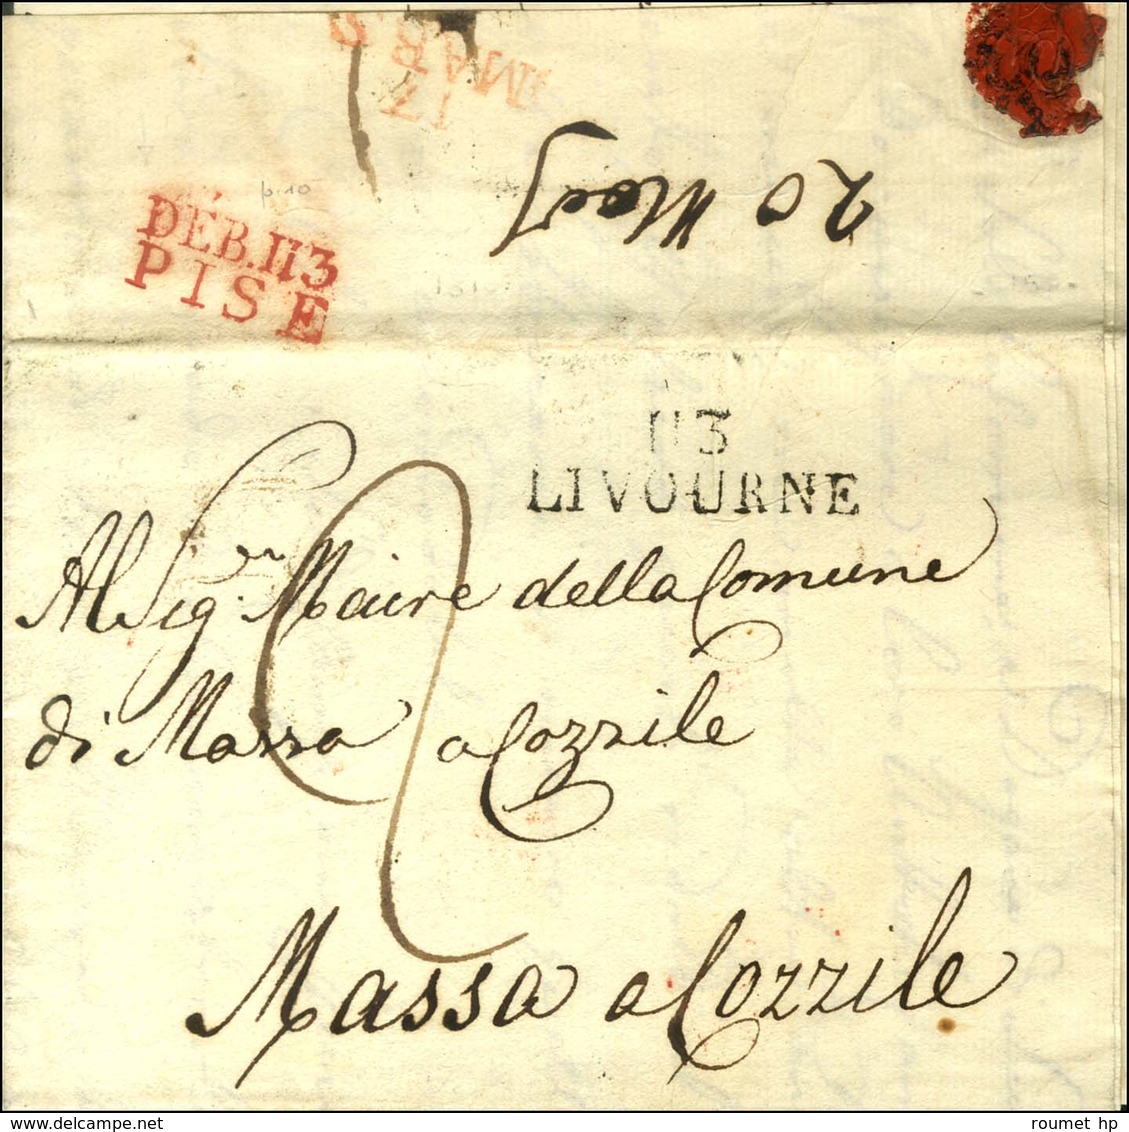 17
MARS
20 Marzo
p.10
DÉB. 113
PISE
113
LIVOURNE
Al Sig.r Maire della Comune
di Massa a Cozzile
2
Massa a Cozzile
roumet hp